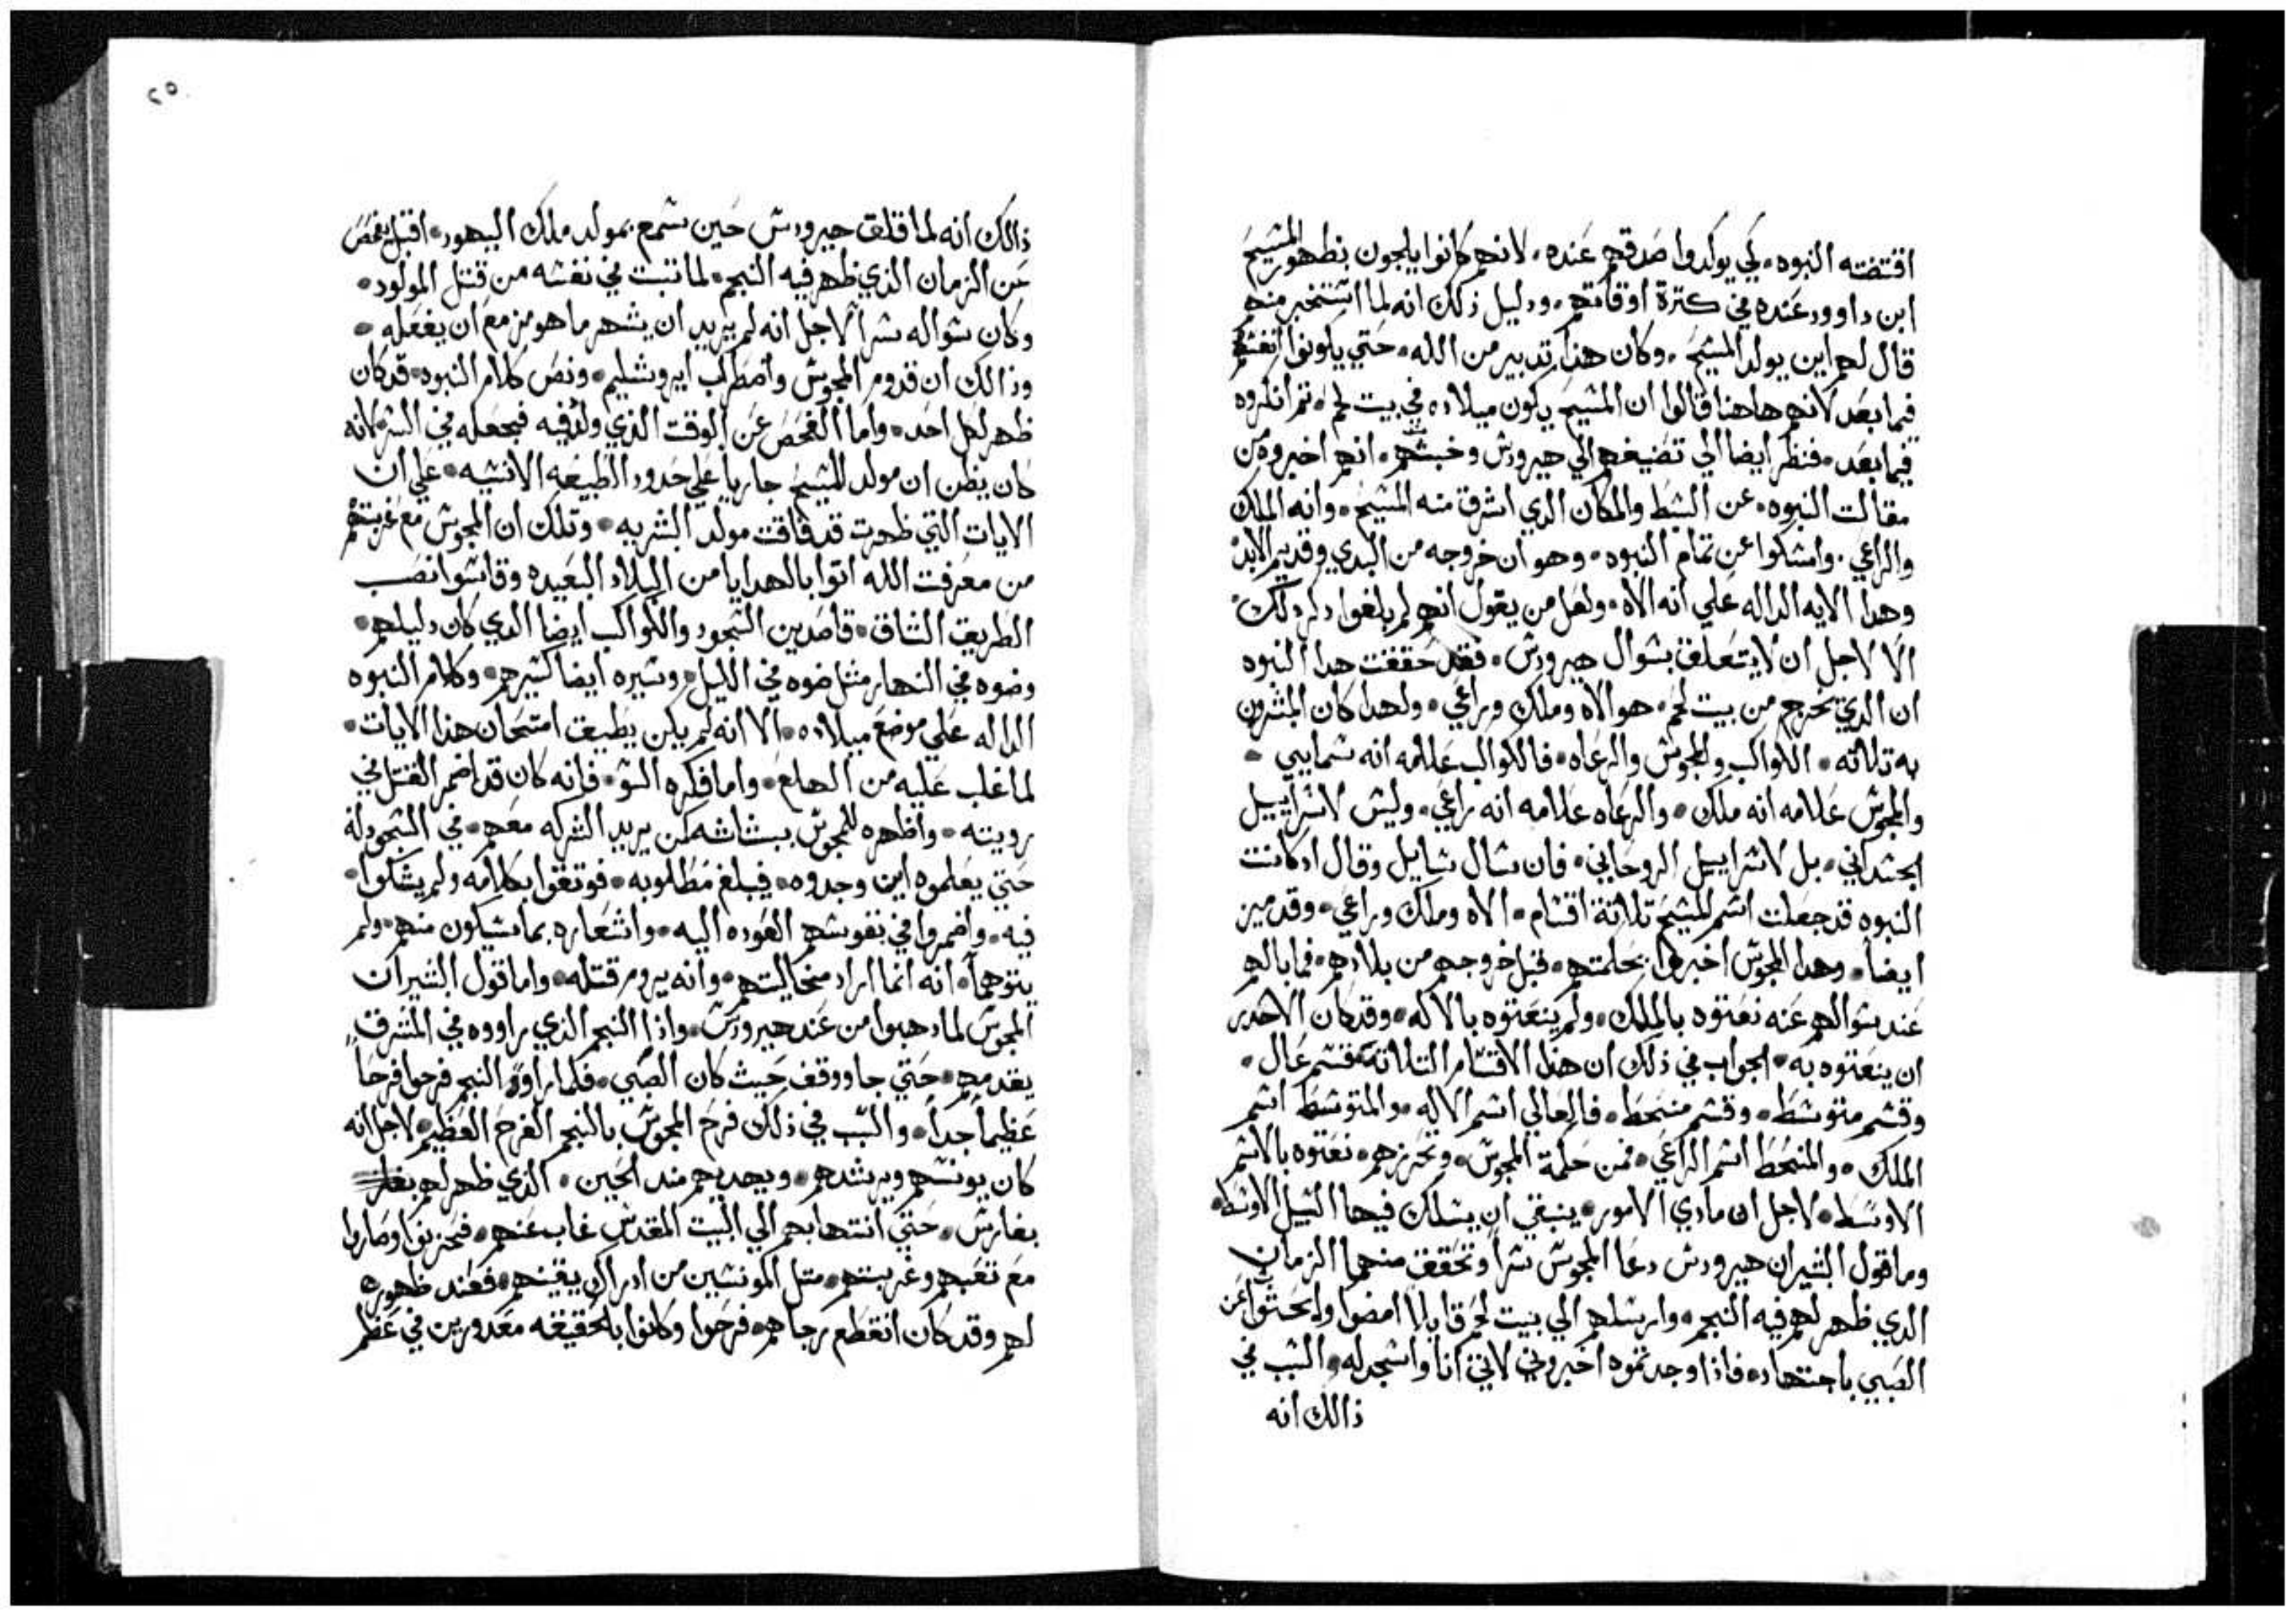 اقتضته النبوه. لكي يوكدوا صدقهم عنده. لانهم كانوا يلهجون بظهور المسيح
ابن داوود عنده في كترة اوقاتهم. ودليل ذلك انه لما استخبر منهم
قال لهم اين يولد المسيح. وكان هذا تدبير من الله. حتي يكونوا انفسهم
فيما بعد لانهم هاهنا قالوا ان المسيح يكون ميلاده في بيت لحم. تم انكروه
فيما بعد. فنظر ايضا الي تضيغهم الي هيرودس وخبتهم. انهم اخبروه من
مقالت النبوه. عن السبط والمكان الدي اشرق منه المسيح. وانه الملك
والراعي. وامسكوا عن تمام النبوه. وهو ان خروجه من البدي وقديم الابد
وهدا الايه الداله علي انه الاه. ولعل من يقول انهم لم يلغوا دكر دلك
الا لاجل ان لا يتعلق بسوال هيرودس. فقد حققت هدا النبوه
ان الدي يخرج من بيت لحم. هو الاه وملك وراعي. ولهدا كان المبشرون
به تلاته. الكواكب والمجوس والرعاه. فالكواكب علامه انه سمايي.
والمجوس علامه انه ملك. والرعاه علامه انه راعي. وليس لاسراييل
الجسداني. بل لاسراييل الروحاني. فان سال سايل وقال اد كانت
النبوه قد جعلت اسم المسيح تلاتة اقسام. الاه وملك وراعي. وقد ميز
ايضا. وهدا المجوس اخبروا بحكمتهم. قبل خروجهم من بلادهم. فما بالهم
عند سوالهم عنه نعتوه بالملك. ولم ينعتوه بالاله. وقد كان الاجدر
ان ينعتوه به. الجواب في ذلك ان هذا الاقسام التلاتة قسم عال.
وقسم متوسط. وقسم منحط. فالعالي اسم الاله. والمتوسط اسم
الملك. والمنحط اسم الراعي. فمن حكمة المجوس. وتحرزهم. نعتوه بالاسم
الاوسط. لاجل ان مبادي الامور. ينبغي ان يسلك فيها السبيل الاوسط.
وما قول البشير ان هيرودس دعا المجوس سرا وتحقق منهما الزمان
الدي ظهر لهم فيه النجم. وارسلهم الي بيت لحم قايلا امضوا وابحتوا عن
الصبي باجتهاد. فاذا وجدتموه اخبروني لاتي انا واسجد له. والسبب في
ذالك انه
٢٥
ذالك انه لما قلق هيرودس حين سمع بمولد ملك اليهود. اقبل يفحص
عن الزمان الذي ظهر فيه النجم. لما تبت في نفسه من قتل المولود.
وكان سواله سرا لاجل انه لم يريد ان يشهر ما هو مزمع ان يفعله.
وذالك ان قدوم المجوس واضطراب ايروشليم. ونص كلام النبوه. قد كان
ظهر لكل احد. واما الفحص عن الوقت الذي ولد فيه فجعله في السر لانه
كان يظن ان مولد المسيح جاريا علي حدود الطبيعه الانسيه. علي ان
الايات التي ظهرت قد فاقت مولد البشريه. وتلك ان المجوس مع غربتهم
من معرفت الله اتوا بالهدايا من البلاد البعيده وقاسوا نصب
الطريق الشاق. قاصدين السجود والكواكب ايضا الدي كان دليلهم.
وضوه في النهار مثل ضوه في الليل. وسيره ايضا كسيرهم. وكلام النبوه
الداله علي موضع ميلاده. الا انه لم يكن يطيق استمحان هذا الايات.
لما غلب عليه من الهلع. واما فكره السو. فانه كان قد اضمر القتل في
رويته. واظهره للمجوس ببشاشه كمن يريد الشركه معهم. في السجود له
حتي يعلموه اين وجدوه. فيبلغ مطلوبه. فوتقوا بكلامه ولم يشكوا.
فيه. واضمروا في نفوسهم العوده اليه. واشعاره بما سيكون منهم. ولم
يتوهما. انه انما اراد مخاليتهم. وانه يروم قتله. واما قول البشير ان
المجوس لما دهبوا من عند هيرودس. واذا النجم الذي راووه في المشرق
يقدمهم. حتي جا ووقف حيث كان الصبي. فلما راوو النجم فرحوا فرحا
عظيما جدا. والسبب في ذلك فرح المجوس بالنجم الفرح العظيم. لاجل انه
كان يونسهم ويرشدهم. ويهديهم مند الحين. الذي ظهر لهم
بفارس. حتي انتها بهم الي البيت المقدس غاب عنهم. فحزنوا وصاروا
مع تعبهم وغربتهم. متل المونسين من ادراك يقينهم. فعند ظهوره
لهم وقد كان انقطع رجاهم. فرحوا وكانوا بالحقيقه معدورين في عظم